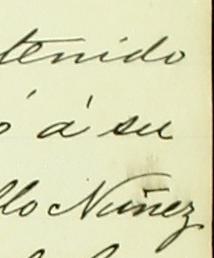 tenido
ó á su
llo Nuñez